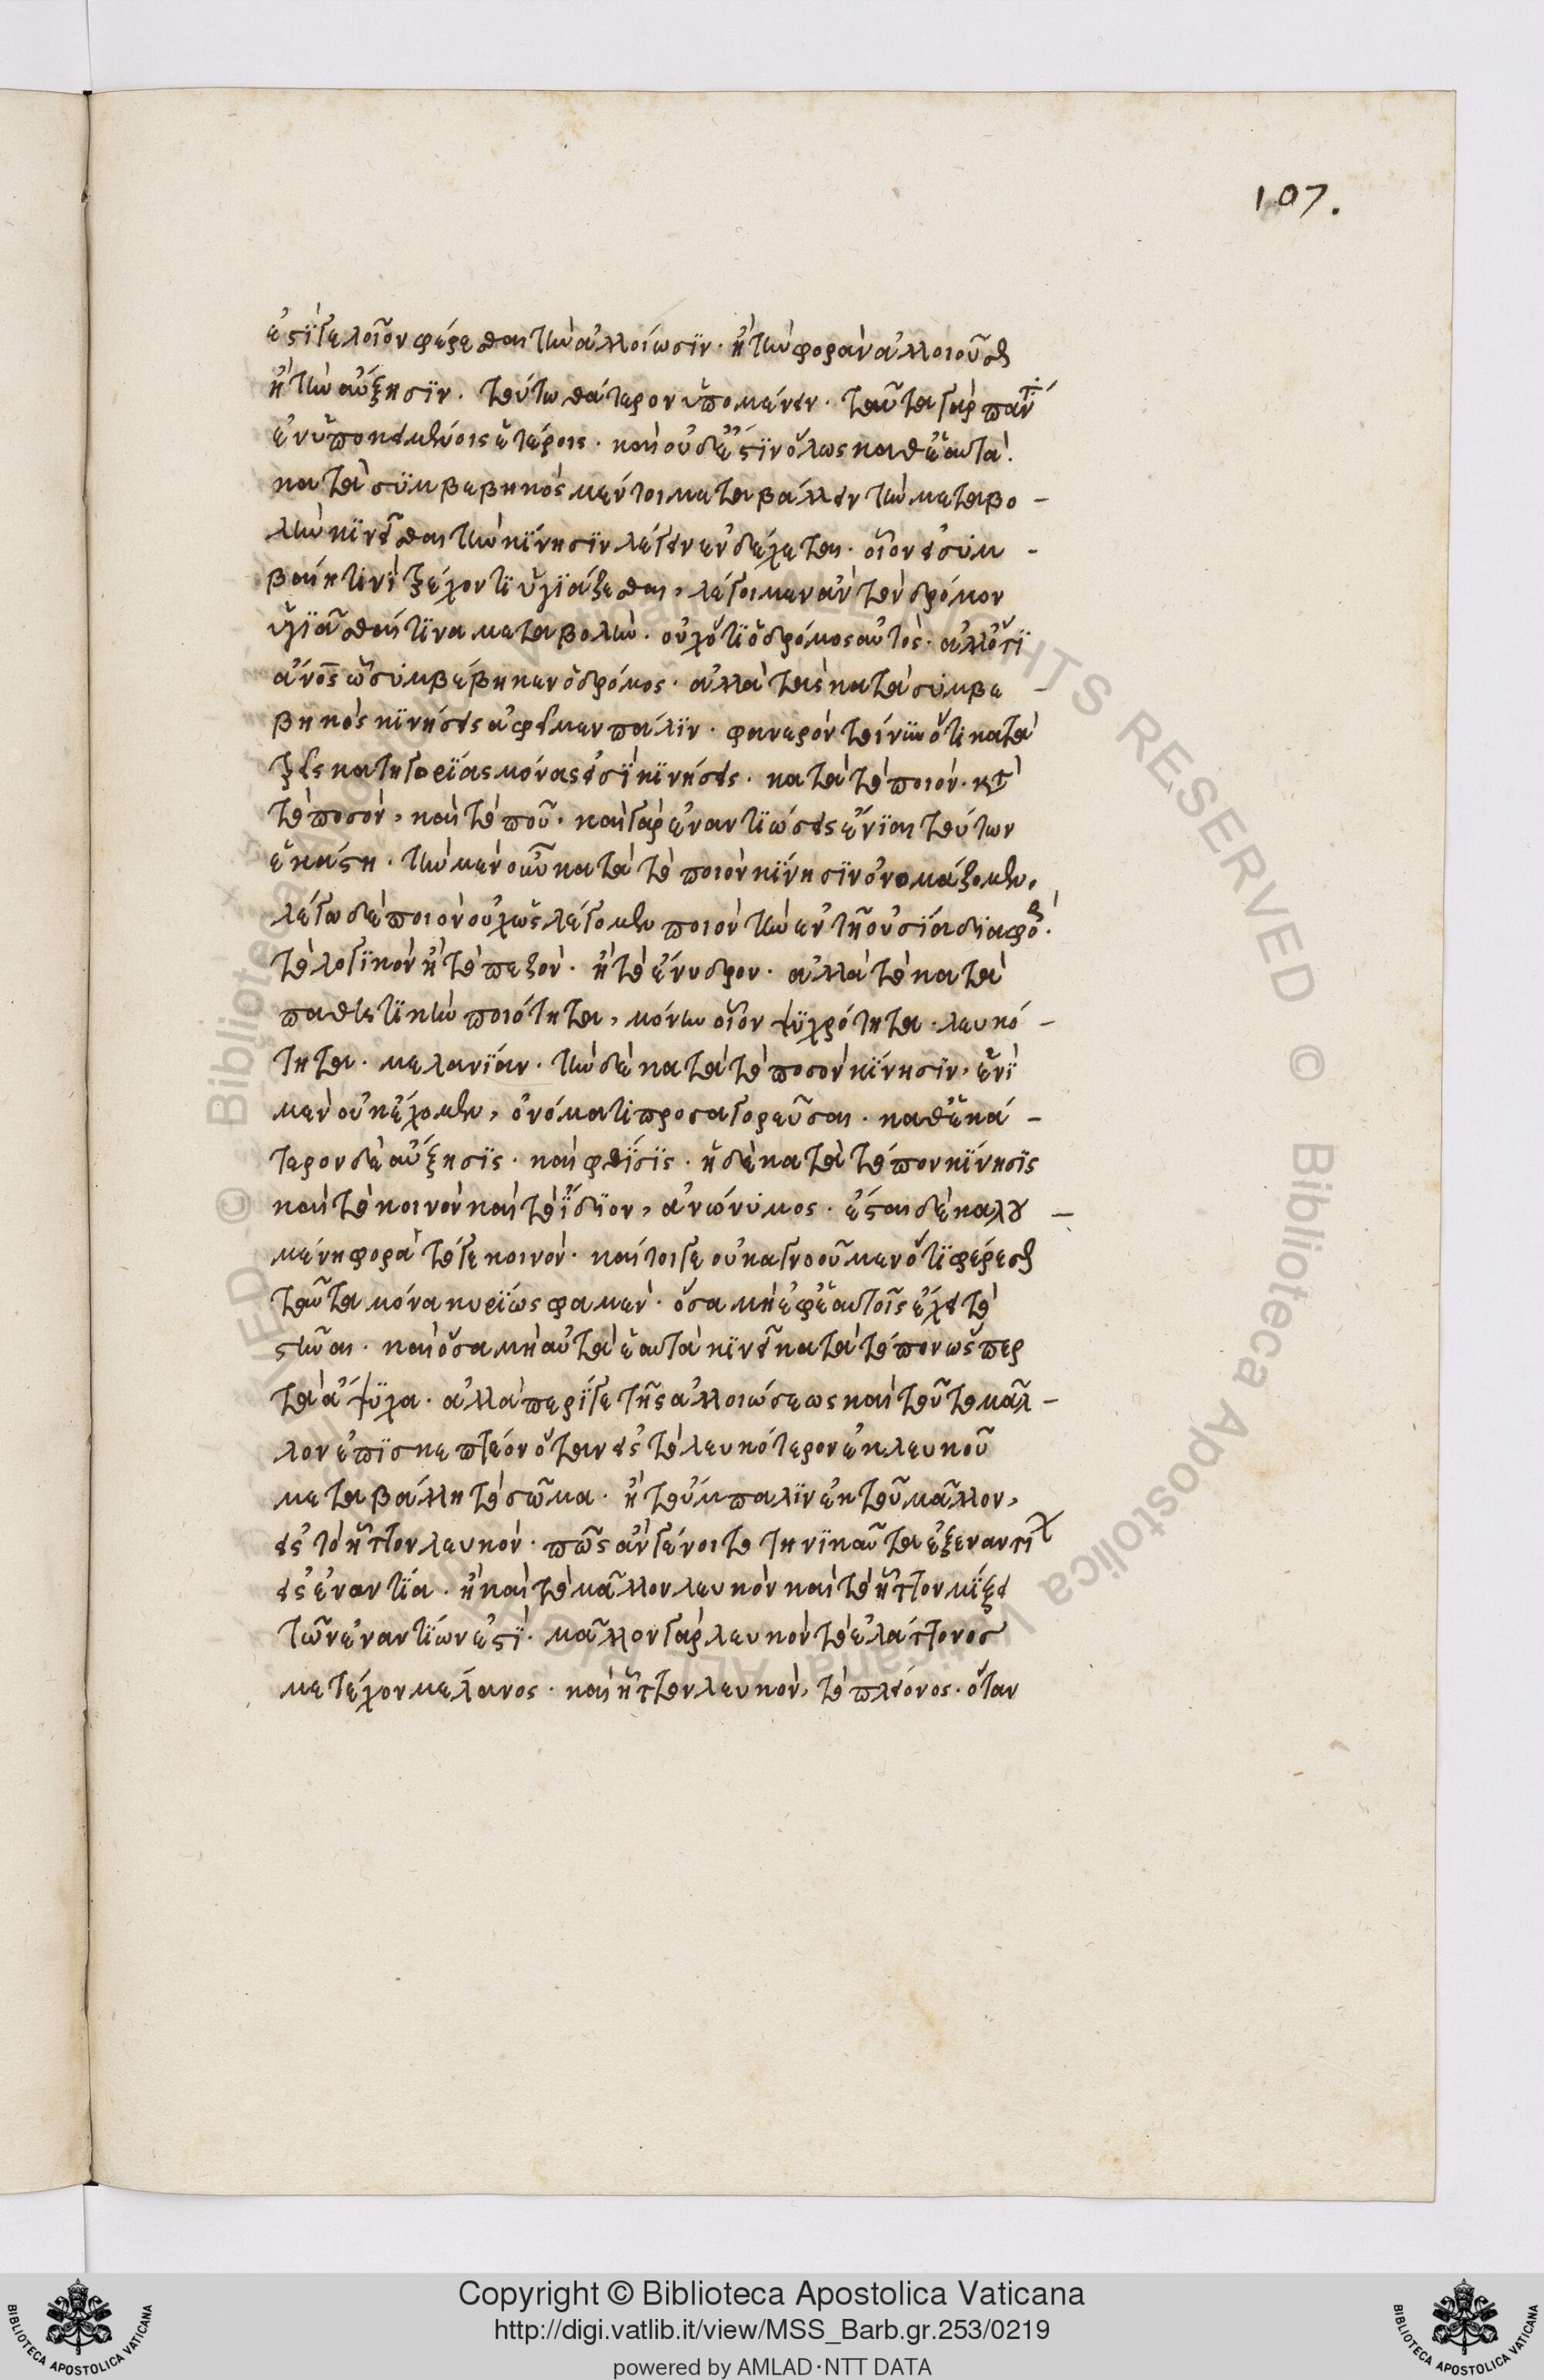 107.
ἐστὶ γελοῖον φέρεσθαι τὴν ἀλλοίωσϊν· ἢ τὴν φορὰν ἀλλοιοῦσθ
ἢ τὴν αὔξησϊν. τούτω θάτερον ὑπομένειν· ταῦτα γὰρ παντ
ἐν ὑποκειμένοις ἑτέροις· καὶ οὐδέ ἐστϊν ὅλως καθ' ἑαυτά.
κατὰ συμβεβηκὸς μέντοι μεταβάλλειν τὴν μεταβο-
λὴν κϊνεῖσθαι τὴν κϊνησϊν λέγειν ἐνδέχεται· οἷον εἰ σύμ-
βαίη τινὶ τρέχοντϊ ὑγϊάζεσθαι, λέγοιμεν ἂν τὸν δρόμον
ὑγϊᾶσθαί τϊνα μεταβολὴν· οὐχ ὅτϊ ὁ δρόμος αὐτὸς· ἀλλ' ὅτϊ
ἄνος ὧ συμβέβηκεν ὁ δρόμος· ἀλλὰ τὰς κατὰ συμβε-
βηκὸς κϊνήσεις ἀφεῖμεν πάλϊν· φανερὸν τοίνυν ὅτι κατὰ
τρεῖς κατηγορϊας μόνας εἰσὶ κϊνήσεις· κατὰ τὸ ποιόν· κτ
τὸ ποσόν, καὶ τὸ ποῦ· καὶ γὰρ ἐναντϊώσεις ἔνϊαι τούτων
ἑκάστη· τὴν μὲν οὖν κατὰ τὸ ποιὸν κϊνησϊν ὀνομάζομεν,
λέγω δὲ ποιὸν οὐχ ὡς λέγομεν ποιὸν τὴν ἐν τῆ οὐσϊα διαφο.
τὸ λογϊκὸν ἢ τὸ πεζόν· ἢ τὸ ἔνυδρον· ἀλλὰ τὸ κατὰ
παθητϊκὴν ποιότητα, μόνην οἷον ψϋχρότητα· λευκό-
τητα· μελανϊαν· τὴν δὲ κατὰ τὸ ποσὸν κϊνησιν, ἑνὶ
μὲν οὐκ ἔχομεν, ὀνόματι προσαγορεῦσαι· καθ' ἑκά-
τερον δὲ αὔξησϊς· καὶ φθϊσϊς· ἡ δὲ κατὰ τόπον κϊνησϊς
καὶ τὸ κοινὸν καὶ τὸ ἴδϊον, ἀνώνυμος· ἔσται δὲ καλου-
μένη φορὰ τό γε κοινόν· καίτοι γε οὐκ ἀγνοοῦμεν ὅτϊ φέρεσθ
ταῦτα μόνα κυρϊως φαμὲν· ὅσα μὴ ἐφ' ἑαυτοῖς ἔχει τὸ
στῆναι· καὶ ὅσα μὴ αὐτὰ ἑαυτὰ κϊνεῖ κατὰ τόπον ὥσπερ
τὰ ἄψϋχα· ἀλλὰ περί γε τῆς ἀλλοιώσεως καὶ τοῦτο μᾶλ-
λον ἐπισκεπτέον ὅταν εἰς τὸ λευκότερον ἐκ λευκοῦ
μεταβάλλη τὸ σῶμα· ἢ τοὔμπαλϊν ἐκ τοῦ μᾶλλον,
εἰς τὸ ἧττον λευκόν· πῶς ἂν γένοιτο τηνϊκαῦτα ἐξ ἐναντι
εἰς ἐναντϊα· ἢ καὶ τὸ μᾶλλον λευκὸν καὶ τὸ ἧττον μϊξει
τῶν ἐναντϊων ἐστϊ· μᾶλλον γὰρ λευκὸν τὸ ἐλάττονος
μετέχον μέλανος· καὶ ἧττον λευκὸν, τὸ πλείονος· ὅταν
Copyright © Biblioteca Apostolica Vaticana
http://digi.vatlib.it/view/MSS_Barb.gr.253/0219
powered by AMLAD·NTT DATA
BIBLIOTECA APOSTOLICA VATICANA
BIBLIOTECA APOSTOLICA VATICANA